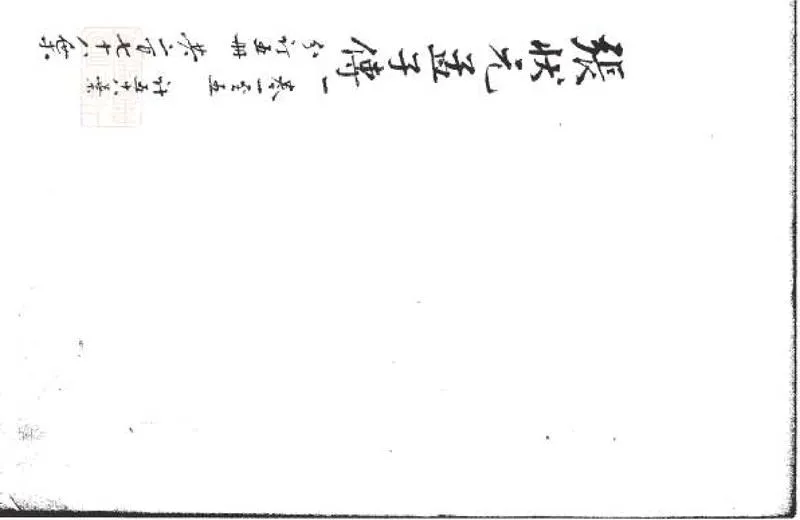 張狀元孟子傳
分訂五冊 共二百七十八葉
一 卷一至五 計五十八葉